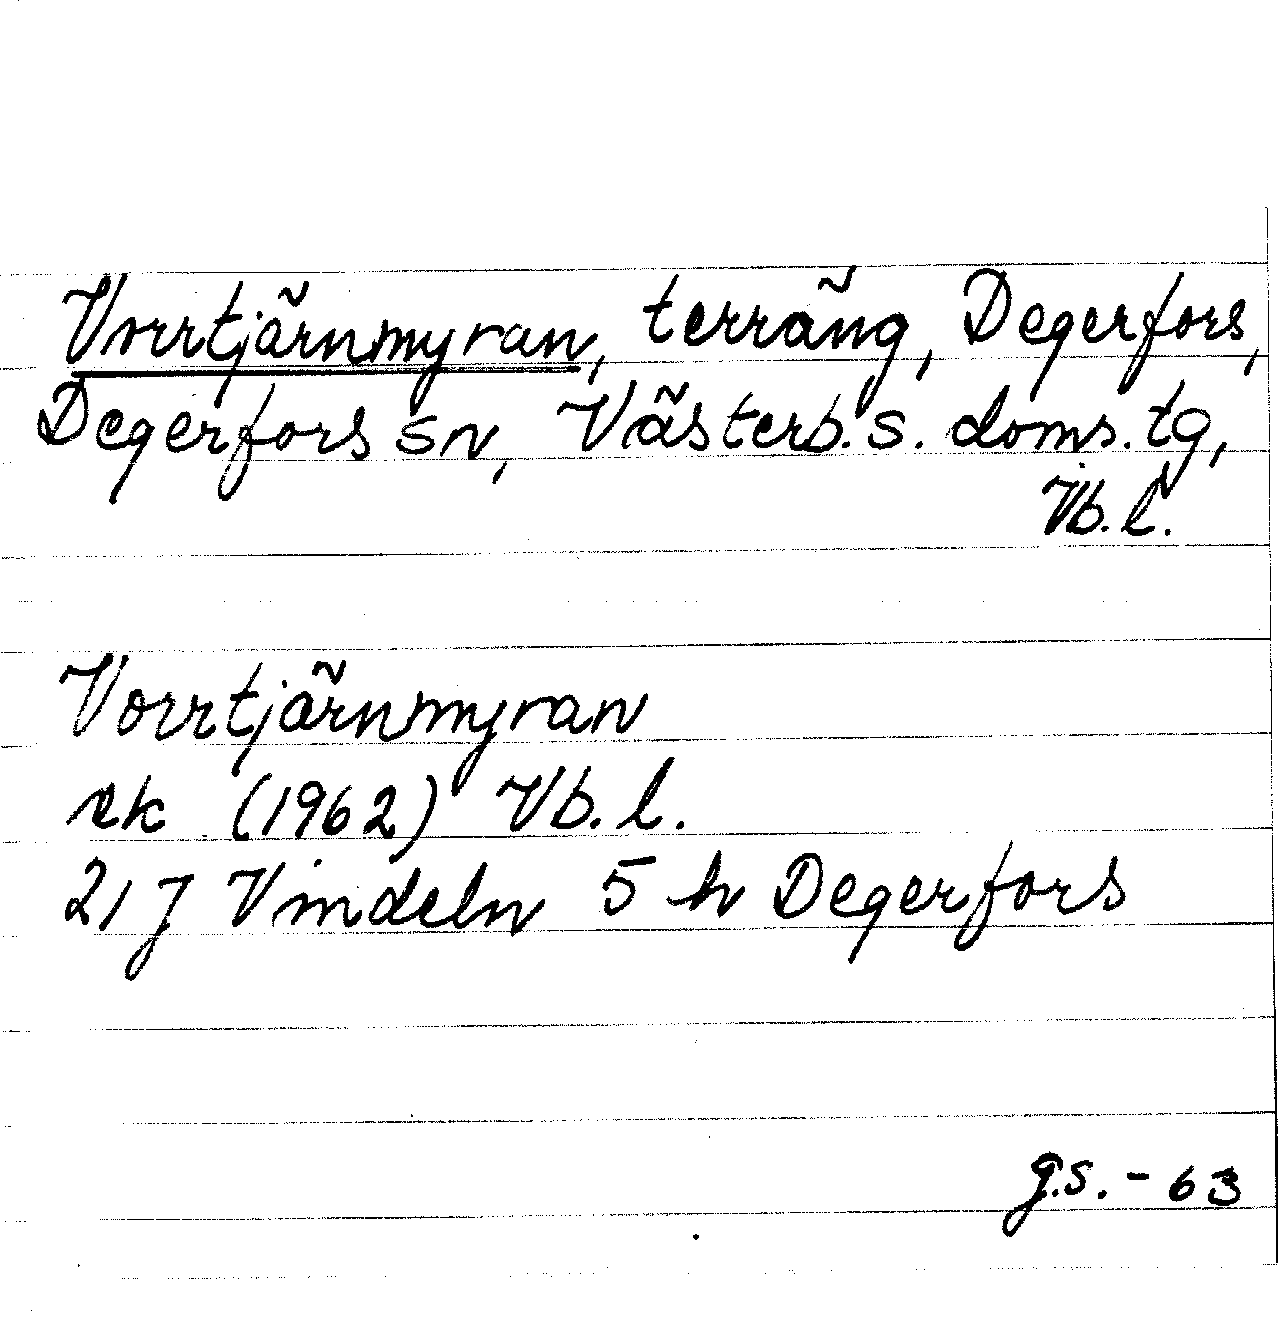 Vorrtjärnmyran, terräng, Degerfors,
Degerfors sn, Västerb. s. doms. tg,
Vb. l.
Vorrtjärnmyran
ek (1962) Vb. l.
21 J Vindeln 5 h Degerfors
g.s. - 63